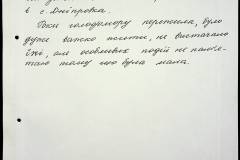 в с. Дніпровка.
Роки голодомору пережила, було
дуже важко жити, не вистачало
їжі, але особливих подій не пам'я-
таю тому що була мала.